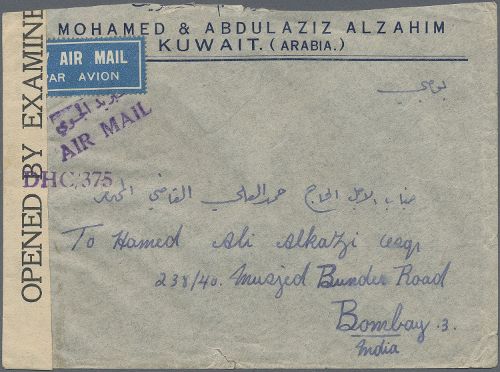 MOHAMED & ABDULAZIZ ALZAHIM
KUWAIT. (ARABIA.)
AIR MAIL
PAR AVION
بومبي
بريد الجوي
AIR MAIL
DHC/375
OPENED BY EXAMINE
جناب الاجل الحاج حمد العلي القاضي المحترم
To Hamed Ali Alkazi esqr
238/40. Musjed Bunder Road
Bombay .3.
India